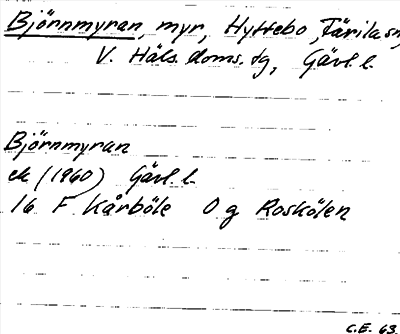 Björnmyran, myr, Hyttebo, Färila sn,
V. Häls. doms. dg, Gävl. l.
Björnmyran
ek (1960) Gävl. l.
16 F Kårböle 0 g Roskölen
C.E. 63.